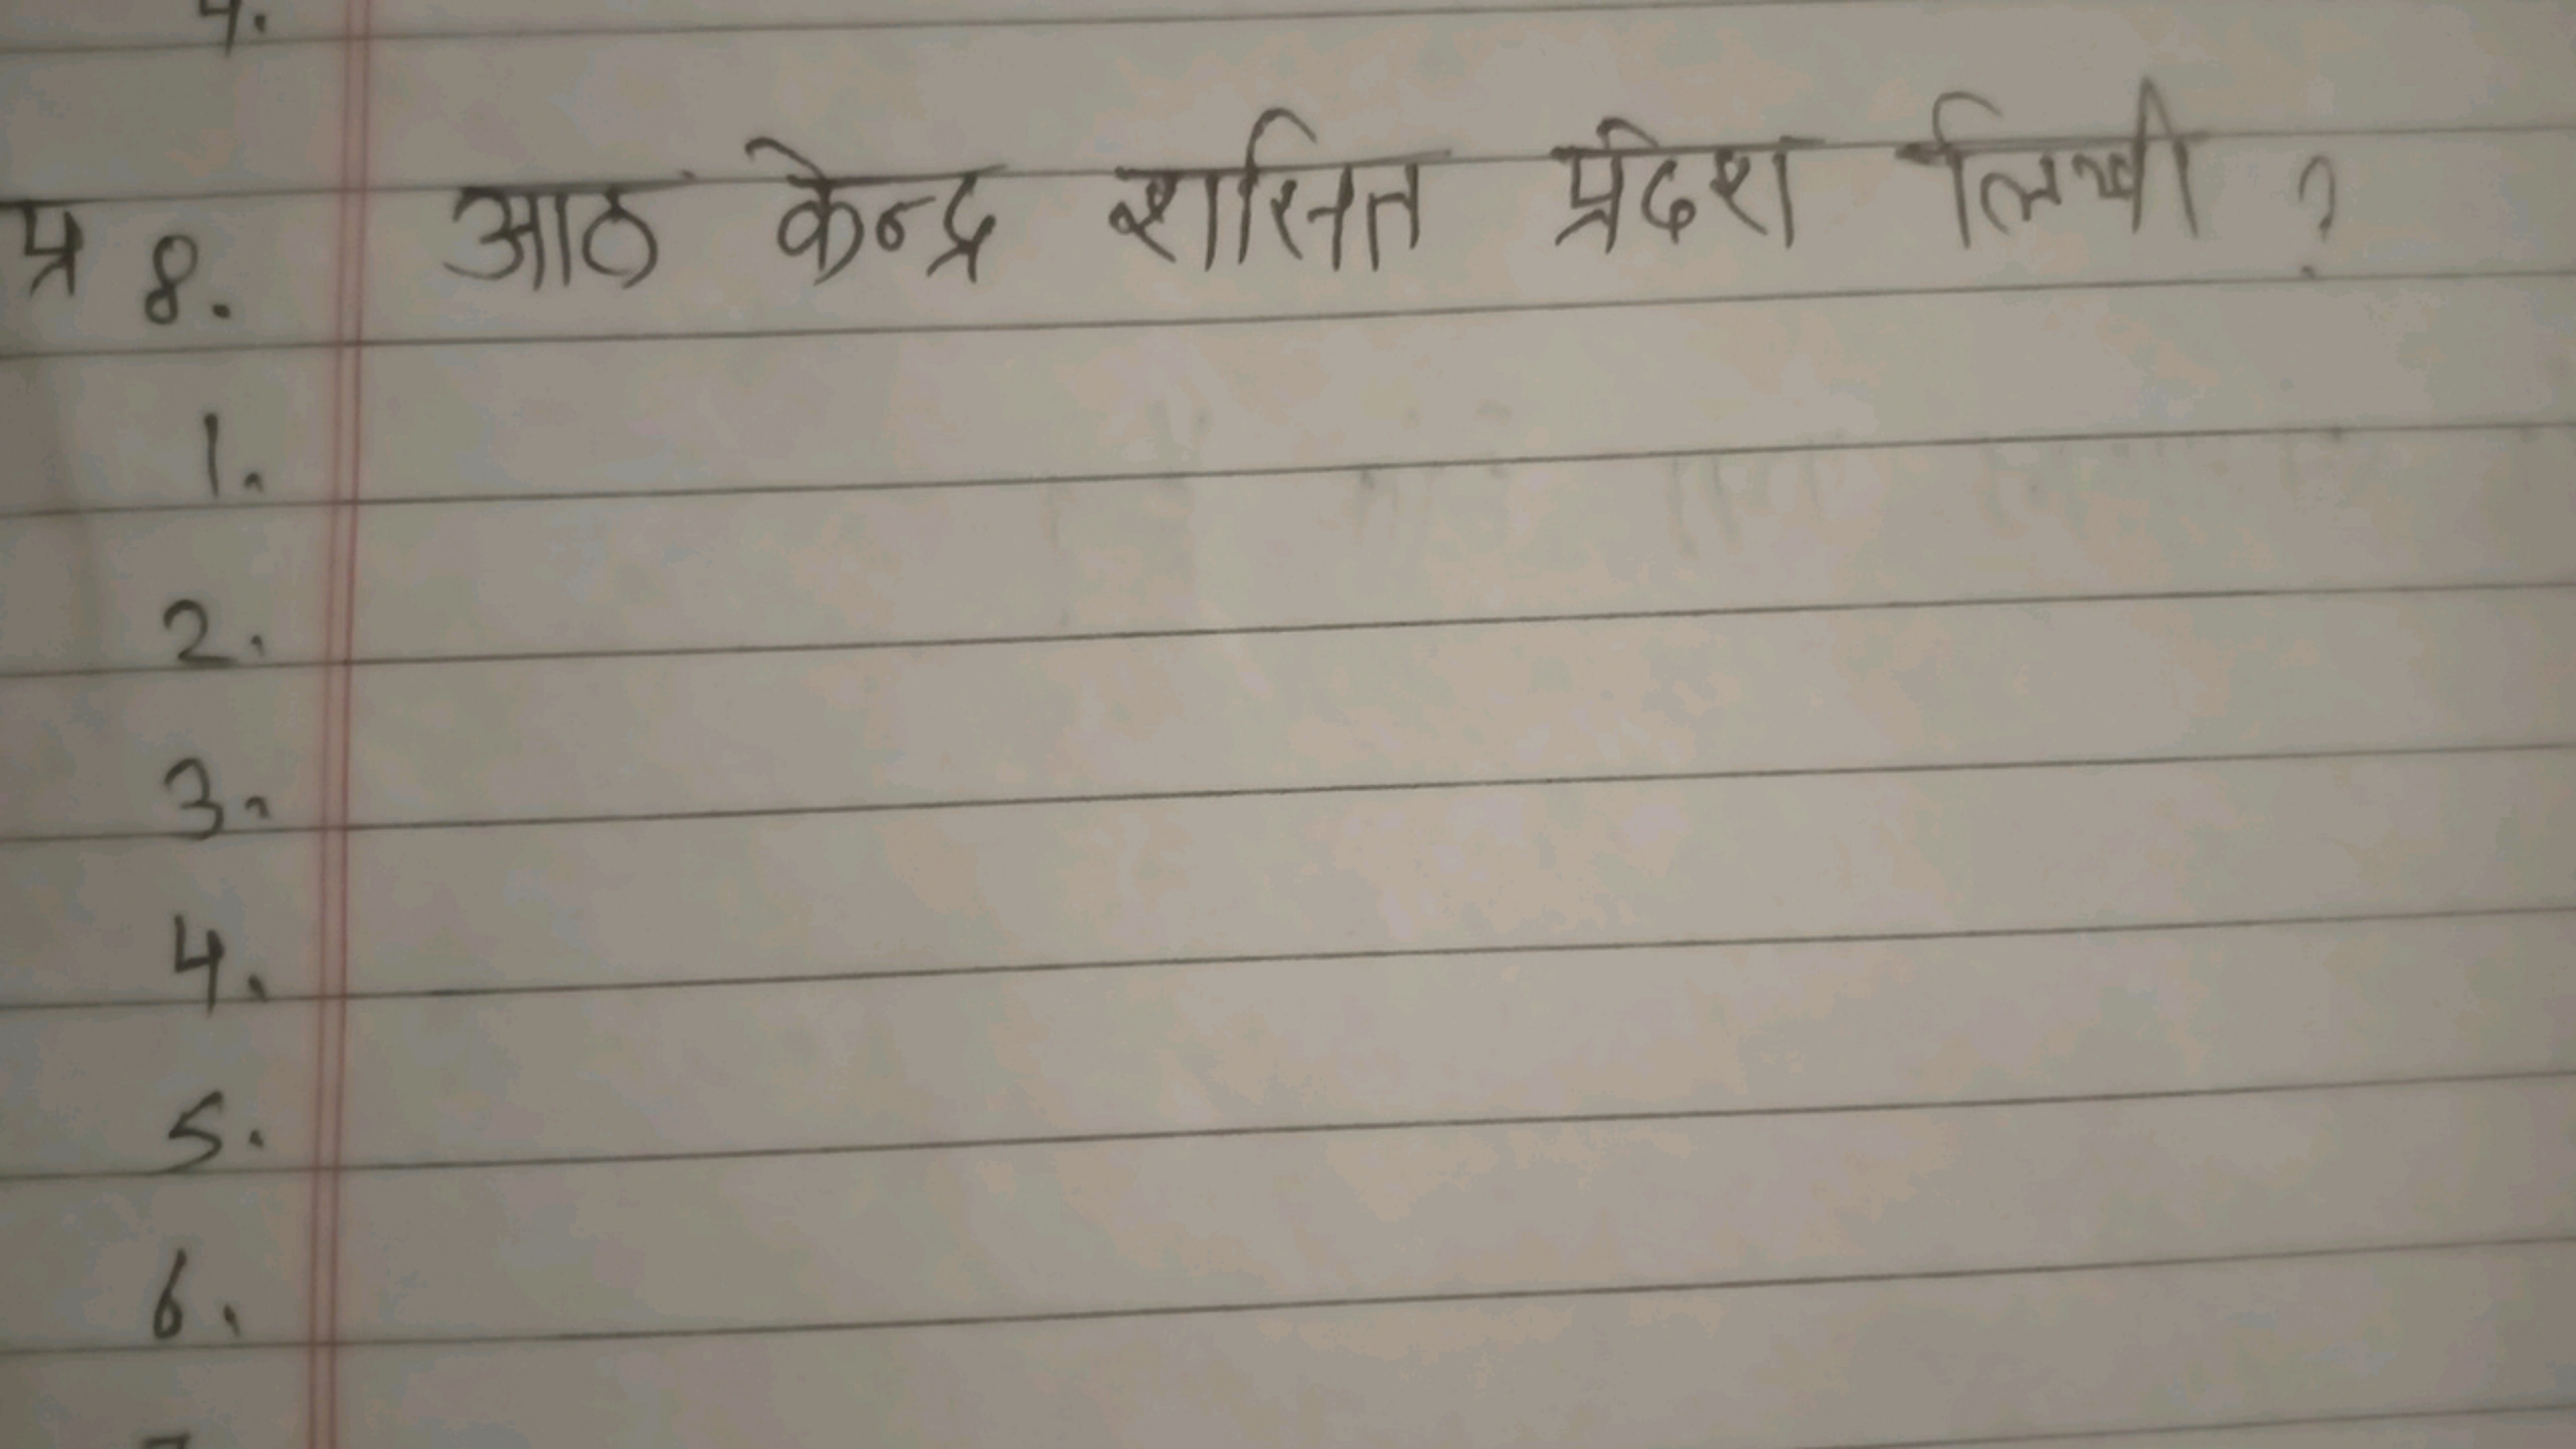 4.
प्र 8. आठ केन्द्र शासित प्रदेश लिखी ?
1.
2.
3.
4.
5.
6.